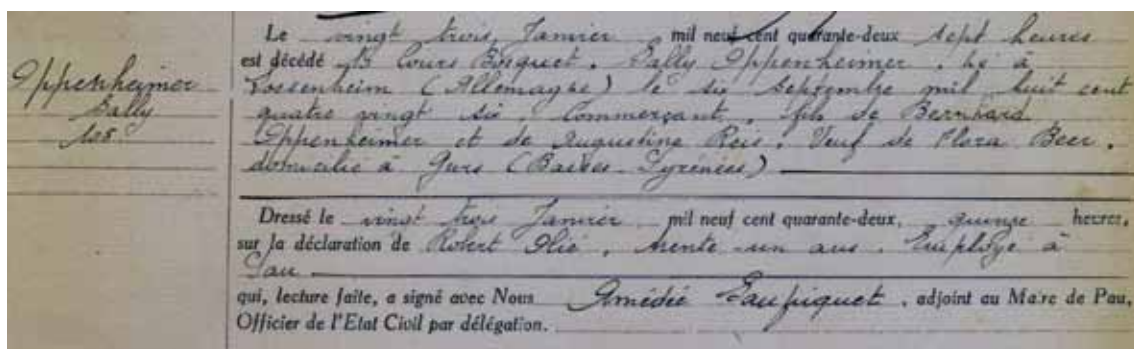 Oppenheimer
Sally
108.
Le vingt trois Janvier mil neuf cent quarante-deux sept heures
est décédé 13 Cours Bosquet. Sally Oppenheimer, né à
(Allemagne) le six Septembre mil huit cent
quatre vingt six, Commerçant, fils de Bernhard
Oppenheimer et de Augustine Reis. Veuf de Flora Beer.
domicilié à Gurs (Basses-Pyrénées)
Dressé le vingt trois Janvier mil neuf cent quarante-deux, quinze heures,
sur la déclaration de Robert Olié, trente-un ans. Employé à
Pau
qui, lecture faite, a signé avec Nous Amédié, adjoint au Maire de Pau,
Officier de l'Etat Civil par délégation.